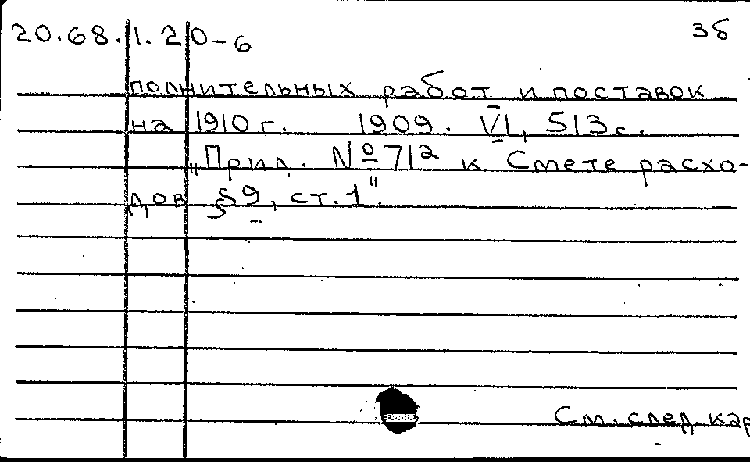 20.68.1.20-6 3б
полнительных работ и поставок
на 1910 г. 1909. VI, 513 с.
"Прил. № 712 к Смете расхо-
дов §9, ст. 1".
См. след. кар